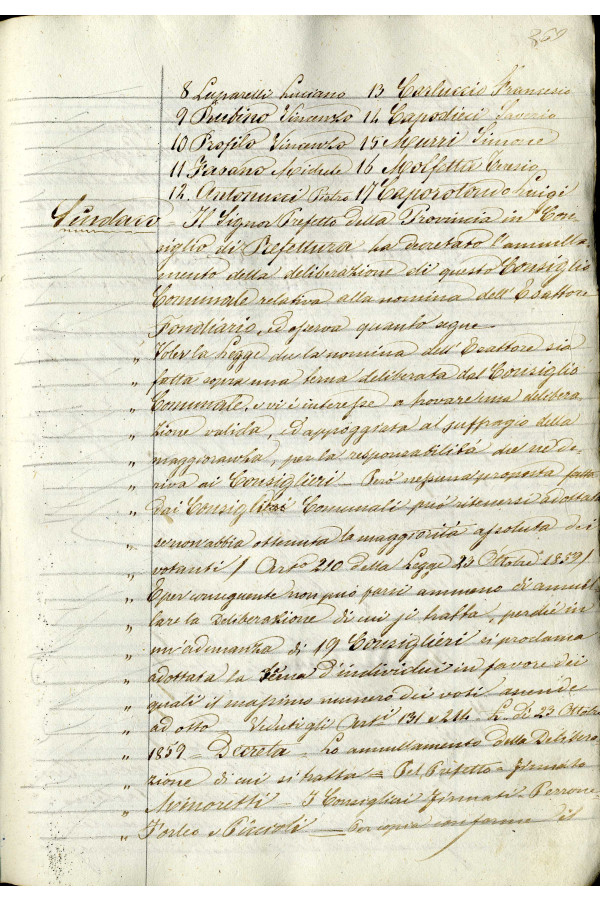 869
8 Luparelli Luciano 13 Carluccio Francesco
9 Rubino Vincenzo 14 Capodieci Saverio
10 Profilo Vincenzo 15 Murri Simone
11 Fasano Michele 16 Molfetta
12. Antonucci Pietro 17 Caporotondo Luigi
Sindaco = Il Signor Prefetto della Provincia in Con-
siglio di Prefettura ha decretato l'annulla-
mento della deliberazione di questo Consiglio
Comunale relativa alla nomina dell'Esattore
Fondiario, ed osserva quanto segue
" Voler la Legge che la nomina dell'Esattore sia
" fatta sopra una terna deliberata dal Consiglio
" Comunale, e vi è interesse a trovare una delibera
" zione valida, ed appoggiata al suffragio della
" maggioranza, per la responsabilità che ne de-
" riva ai Consiglieri — Però nessuna proposta fatta
" dai Consiglieri Comunali può ritenersi adottata
" se non abbia ottenuta la maggiorità assoluta dei
" votanti / Arto 210 della Legge 23 Ottobre 1859 /
" E per conseguente non può farsi ammeno di annul
" lare la Deliberazione di cui si tratta, perchè in
" un'adunanza di 19 Consiglieri si proclama
" adottata la terna d'individui in favore dei
" quali il massimo numero dei voti ascende
" ad otto — Veduti gli Arti 131 e 214 — L. di 23 Ottobre
" 1859 — Decreta — Lo annullamento della Delibera
" zione di cui si tratta = Pel Prefetto = Firmato
" Minoretti — I Consiglieri Firmati = Perrone-
" Forleo e Piccioli — Per copia conforme il